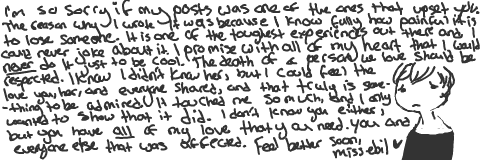 I'm so sorry if my posts was one of the ones that upset you.
The reason why I wrote it was because I know fully how painful it is
to lose someone. It is one of the toughest experiences out there and I
could never joke about it. I promise with all of my heart that I would
never do it just to be cool. The death of a person we love should be
respected. I know I didn't know her, but I could feel the
love you, her, and everyone shared, and that truly is some-
-thing to be admired. It touched me so much, and I only
wanted to show that it did. I don't know you either,
but you have all of my love that you need. You and
everyone else that was affected. Feel better soon,
miss ebil